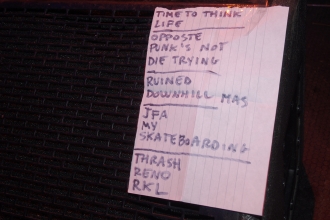 TIME TO THINK
LIFE
OPPOSTE
PUNK'S NOT
DIE TRYING
RUINED
DOWNHILL MAS
JFA
MY
SKATEBOARDING
THRASH
RENO
RKL